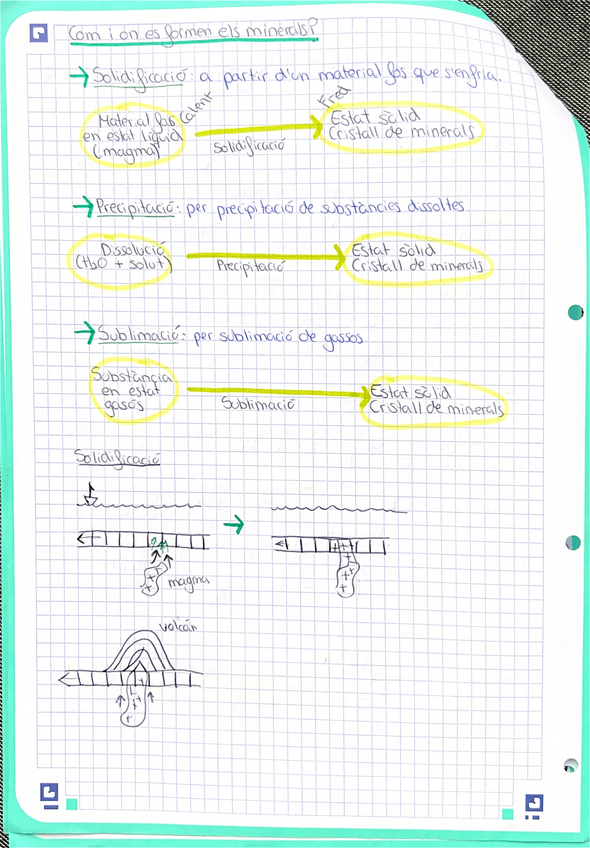 Com i on es formen els minerals?
→ Solidificació: a partir d'un material fos que s'enfria.
Material fos en estat líquid (magma) Calent
Solidificació
Fred
Estat sòlid
Cristall de minerals
→ Precipitació: per precipitació de substàncies dissoltes
Dissolució
(H2O + solut)
Precipitació
Estat sòlid
Cristall de minerals
→ Sublimació: per sublimació de gassos
Substància
en estat
gasós
Sublimació
Estat sòlid
Cristall de minerals
Solidificació
magma
volcán